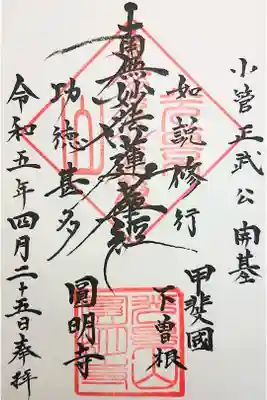 小管正武公開基
甲斐國
下曽根
如説修行
南無妙法蓮華経
功徳甚多
圓明寺
令和五年四月二十五日奉拝